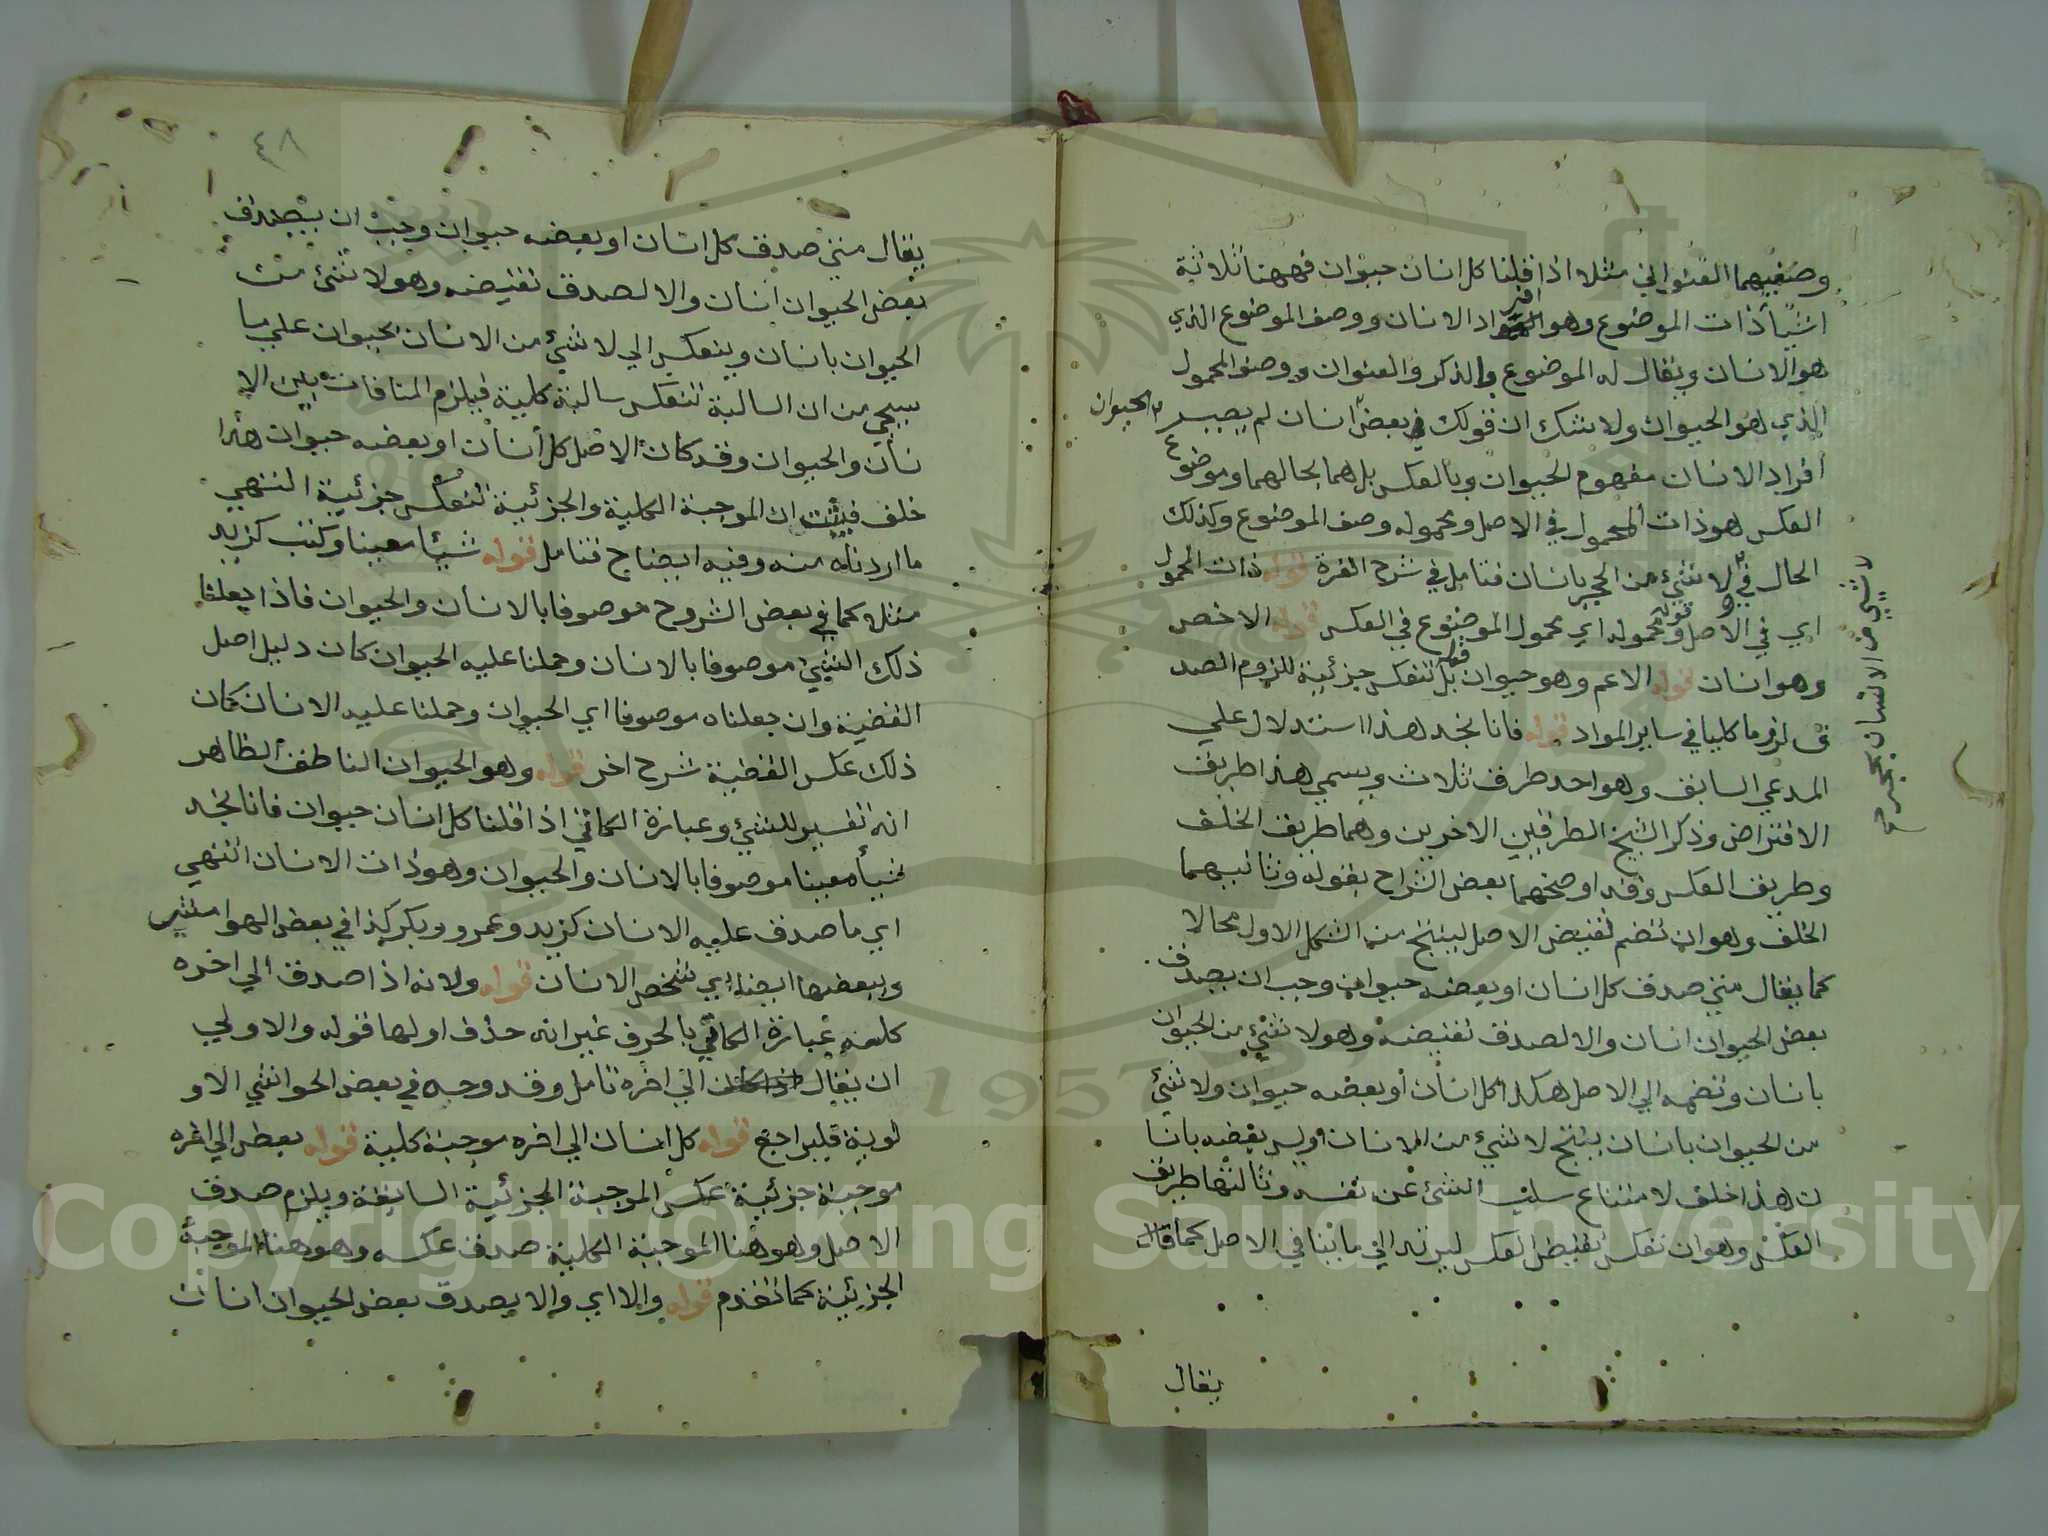 وصفيهما العنواني مثلا اذا قلنا كل انسان حيوان فههنا ثلاثة
اشيأ ذات الموضوع وهو افراد الانسان ووصف الموضوع الذي
هو الانسان ويقال له الموضوع والذكر والعنوان ووصف المحمول
الذي هو الحيوان ولا شك ان قولك بعض انسان لم يصير
م الحيوان
افراد الانسان مفهوم الحيوان وبالعكس بل هما بحالهما وموضوع
العكس هو ذات المحمول في الاصل ومحموله وصف الموضوع وكذلك
الحال في لا شئ من الحجر بانسان فتامل في شرح الغرة قوله ذات المحمول
لا شئ من الانسان بحجر
اي في الاصل قوله ومحموله اي محمول الموضوع في العكس قوله الاخص
وهو انسان قوله الاعم وهو حيوان قوله بل تنعكس جزئية للزوم الصد
ق لزوما كليا في ساير المواد قوله فانا نجد هذا استدلال علي
المدعي السابق وهو احد طرف ثلاث ويسمي هذا طريق
الافتراض وذكر الشيخ الطرفين الاخرين وهما طريق الخلف
وطريق العكس وقد اوضحهما بعض الشراح بقوله وثانيهما
الخلف وهو ان تضم نقيض الاصل لينتج من الشكل الاول محالا
كما يقال متي صدق كل انسان او بعضه حيوان وجب ان يصدق
بعض الحيوان انسان والا لصدق نقيضه وهو لا شئ من الحيوان
بانسان وتضمه الي الاصل هكذا كل انسان او بعضه حيوان ولا شئ
من الحيوان بانسان ينتج لا شئ من الانسان وليس بعضه بانسا
ن هذا خلف لامتناع سلب الشئ عن نفسه وثالثها طريق
العكس وهو ان تعكس نقيض العكس ليرتد الي ما ينافي الاصل كما قال
يقال
٤٨
يقال متي صدق كل انسان او بعضه حيوان وجب ان يصدق
بعض الحيوان انسان والا لصدق نقيضه وهو لا شئ من
الحيوان بانسان وينعكس الي لا شئ من الانسان بحيوان علي ما
سيجي من ان السالبة تنعكس سالبة كلية فيلزم المنافات بين الا
نسان والحيوان وقد كان الاصل كل انسان او بعضه حيوان هذا
خلف فيثبت ان الموجبة الكلية والجزئية تنعكس جزئية انتهي
ما اردناه منه وفيه ايضاح فتامل قوله شيئا معينا وكتب كزيد
مثله كما في بعض الشروح موصوفا بالانسان والحيوان فاذا جعلنا
ذلك الشئ موصوفا بالانسان وحملنا عليه الحيوان كان دليل اصل
القضية وان جعلناه موصوفا اي الحيوان وحملنا عليه الانسان كان
ذلك عكس القضية شرح اخر قوله وهو الحيوان الناطق الظاهر
انه تفسير للشئ وعبارة الكاتي اذا قلنا كل انسان حيوان فانا نجد
شيأ معينا موصوفا بالانسان والحيوان وهو ذات الانسان انتهي
اي ما صدق عليه الانسان كزيد وعمرو وبكر كذا في بعض الهوامش
وببعضها ايضا اي شخص الانسان قوله ولانه اذا صدق الي اخره
كلمه عبارة الكاتي بالحرف غير انه حذف اولها قوله والاولي
ان يقال الي اخره تامل وقد وجه في بعض الحواشي الاو
لوية فليراجع قوله كل انسان الي اخره موجبة كلية قوله بعض الي اخره
موجبة جزئية عكس الموجبة الجزئية السابقة ويلزم صدق
الاصل وهو هنا الموجبة الكلية صدق عكسه وهو هنا الموجبة
الجزئية كما تقدم قوله والا اي والا يصدق بعض الحيوان انسان
Copyright © King Saud University
1957